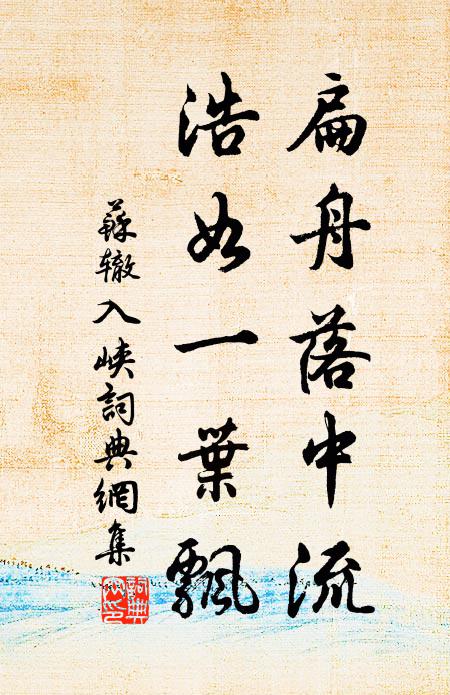 扁舟落中流
浩如一葉飄
蘇辙入峽詞典網集